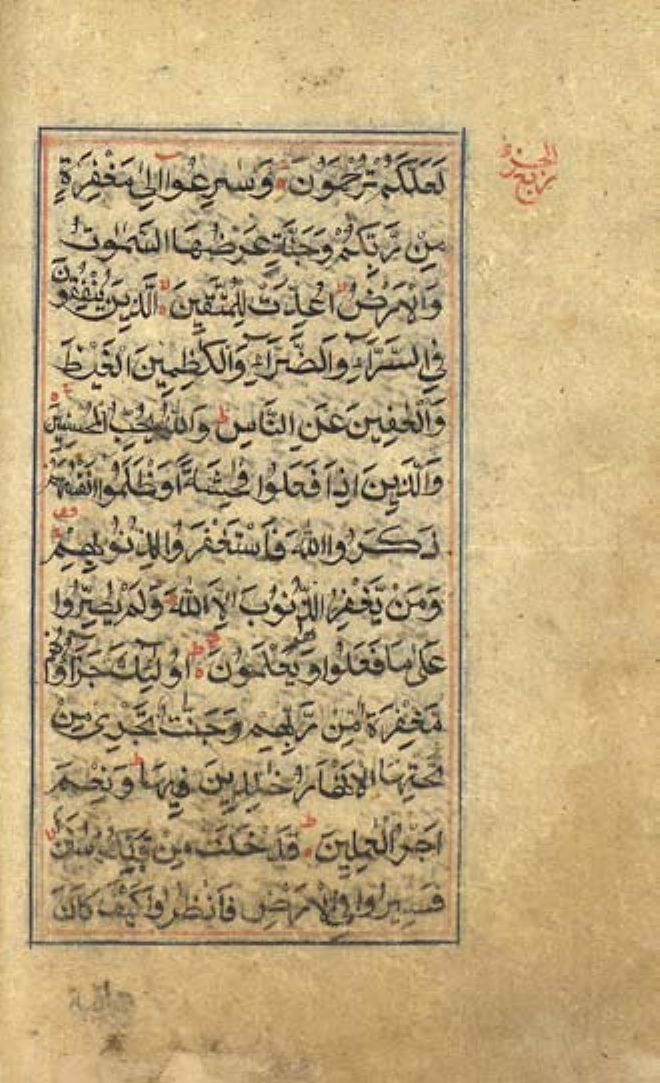 ربع الجزء
لَعَلَّكُمْ تُرْحَمُونَ وَسَارِعُوٓا اِلٰى مَغْفِرَةٍ
مِنْ رَّبِّكُمْ وَجَنَّةٍ عَرْضُهَا السَّمٰوٰتُ
وَالْاَرْضُ اُعِدَّتْ لِلْمُتَّقِينَ الَّذِينَ يُنْفِقُونَ
فِي السَّرَّآءِ وَالضَّرَّآءِ وَالْكٰظِمِينَ الْغَيْظَ
وَالْعَافِينَ عَنِ النَّاسِ ط وَاللّٰهُ يُحِبُّ الْمُحْسِنِينَ
وَالَّذِينَ اِذَا فَعَلُوا فٰحِشَةً اَوْ ظَلَمُوا اَنْفُسَهُمْ
ذَكَرُوا اللّٰهَ فَاسْتَغْفَرُوا لِذُنُوبِهِمْ
وَمَنْ يَّغْفِرُ الذُّنُوبَ اِلَّا اللّٰهُ وَلَمْ يُصِرُّوا
عَلٰى مَا فَعَلُوا وَهُمْ يَعْلَمُونَ اُولٰٓئِكَ جَزَآؤُهُمْ
مَغْفِرَةٌ مِّنْ رَّبِّهِمْ وَجَنّٰتٌ تَجْرِي مِنْ
تَحْتِهَا الْاَنْهَارُ خٰلِدِينَ فِيهَا ط وَنِعْمَ
اَجْرُ الْعٰمِلِينَ ط قَدْ خَلَتْ مِنْ قَبْلِكُمْ سُنَنٌ
فَسِيرُوا فِي الْاَرْضِ فَانْظُرُوا كَيْفَ كَانَ
عاقبة